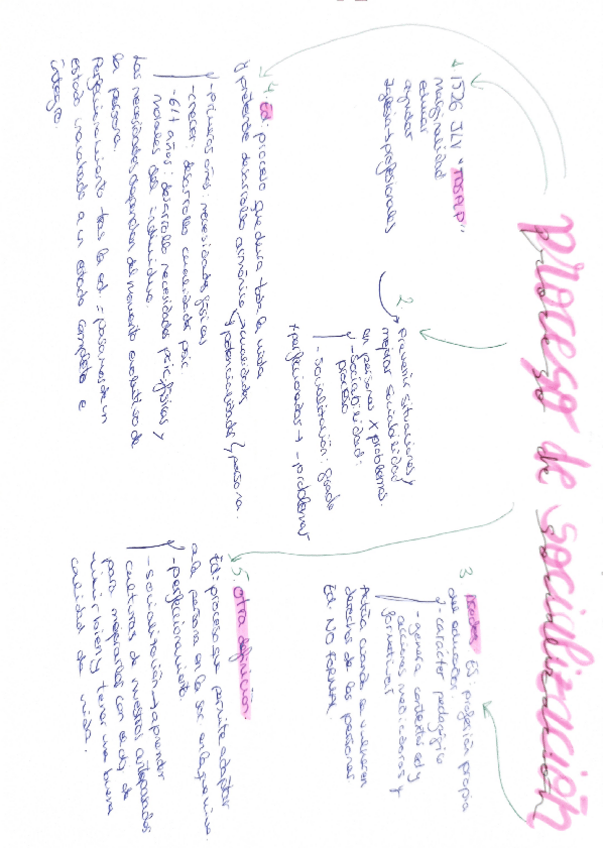 proceso de socialización
1. 1526 JLV "TDSALP"
marginalidad
educar
ayudar
Iglesia → profesionales
2.
prevenir situaciones y
mejorar sociabilidad
en personas x problemas.
- sociabilidad:
proceso
- socialización: grado
+ perfeccionados → - problemas
3 ES: profesión propia
del educador.
- carácter pedagógico
- genera contextos ed y
acciones mediadoras y
formativas
Actúa cuando se vulneran
derechos de las personas
Ed: NO FORMAL.
4. Ed: proceso que dura toda la vida
y pretende desarrollo armónico → cualidades
y potencialidades persona.
- Primeros años: necesidades físicas
- crecer: desarrollo cualidades psic
- 6/7 años: desarrollo necesidades psicofísicas y
morales del individuo.
Las necesidades dependen del momento evolutivo de
la persona.
Perfeccionamiento tras la ed: pasamos de un
estado inacabado a un estado completo e
íntegro.
5. Otra definición.
Ed: proceso que permite adaptar
a la persona en la soc en la que vive.
- perfeccionamiento.
- socialización → aprender
culturas de nuestros antepasados
para mejorarlas con el obj de
vivir bien y tener una buena
calidad de vida.